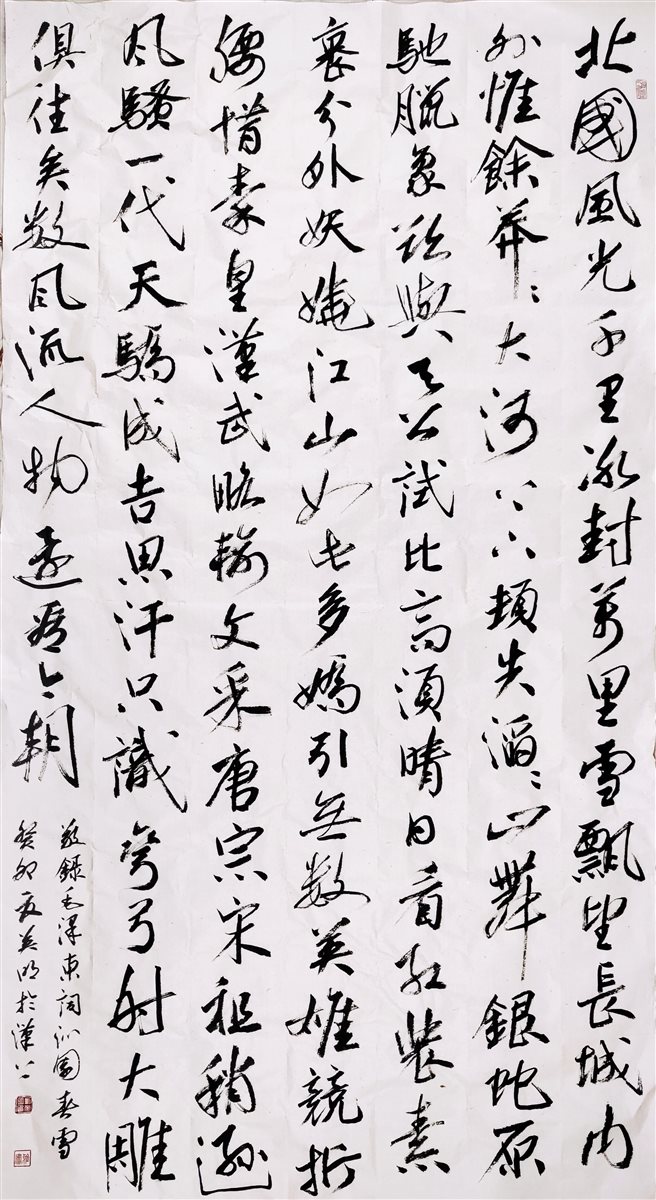 北國風光千里冰封萬里雪飄望長城內
外惟餘莽〻大河上下頓失滔〻山舞銀蛇原
馳臘象欲與天公試比高須晴日看紅裝素
裹分外妖嬈江山如此多嬌引無數英雄競折
腰惜秦皇漢武略輸文采唐宗宋祖稍遜
风騷一代天驕成吉思汗只識彎弓射大雕
俱往矣数风流人物還看今朝
敬錄毛澤東詞沁園春雪
癸卯夏英明於漢上